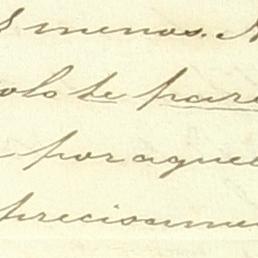 8 menos. N
olo te para
por aque
preciosame